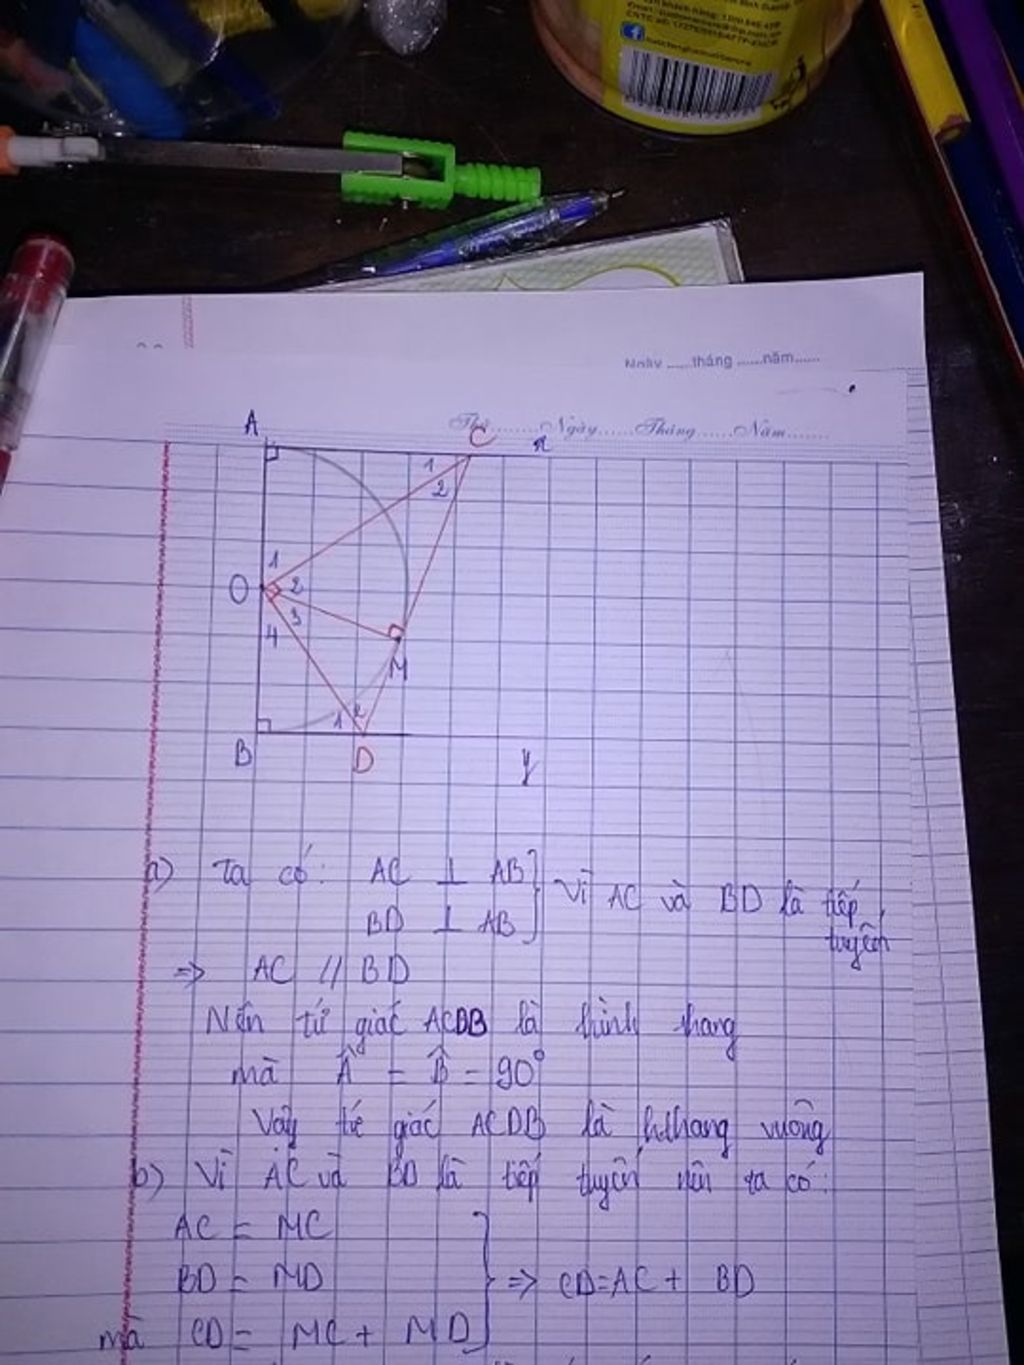 Ngày ......tháng ......năm......
Thứ.........Ngày......Tháng......Năm.......
A
C
x
1
2
1
O
2
3
4
M
1
2
B
D
y
a) Ta có: AC ⊥ AB } Vì AC và BD là tiếp tuyến
BD ⊥ AB
=> AC // BD
Nên tứ giác ACDB là hình thang
mà Â = B̂ = 90°
Vậy tứ giác ACDB là h.thang vuông
b) Vì AC và BD là tiếp tuyến nên ta có:
AC = MC
BD = MD } => CD = AC + BD
mà CD = MC + MD